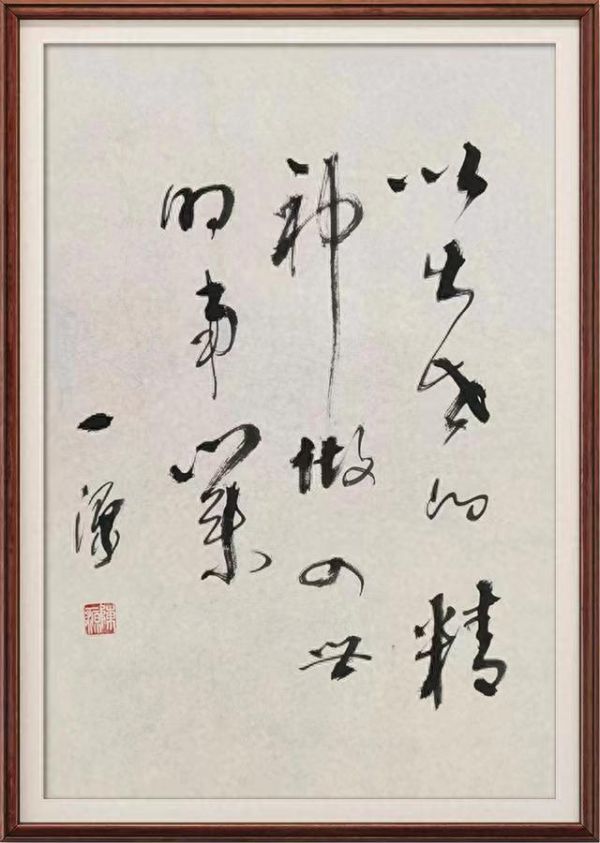 以出世的精
神做入世
的事業
一